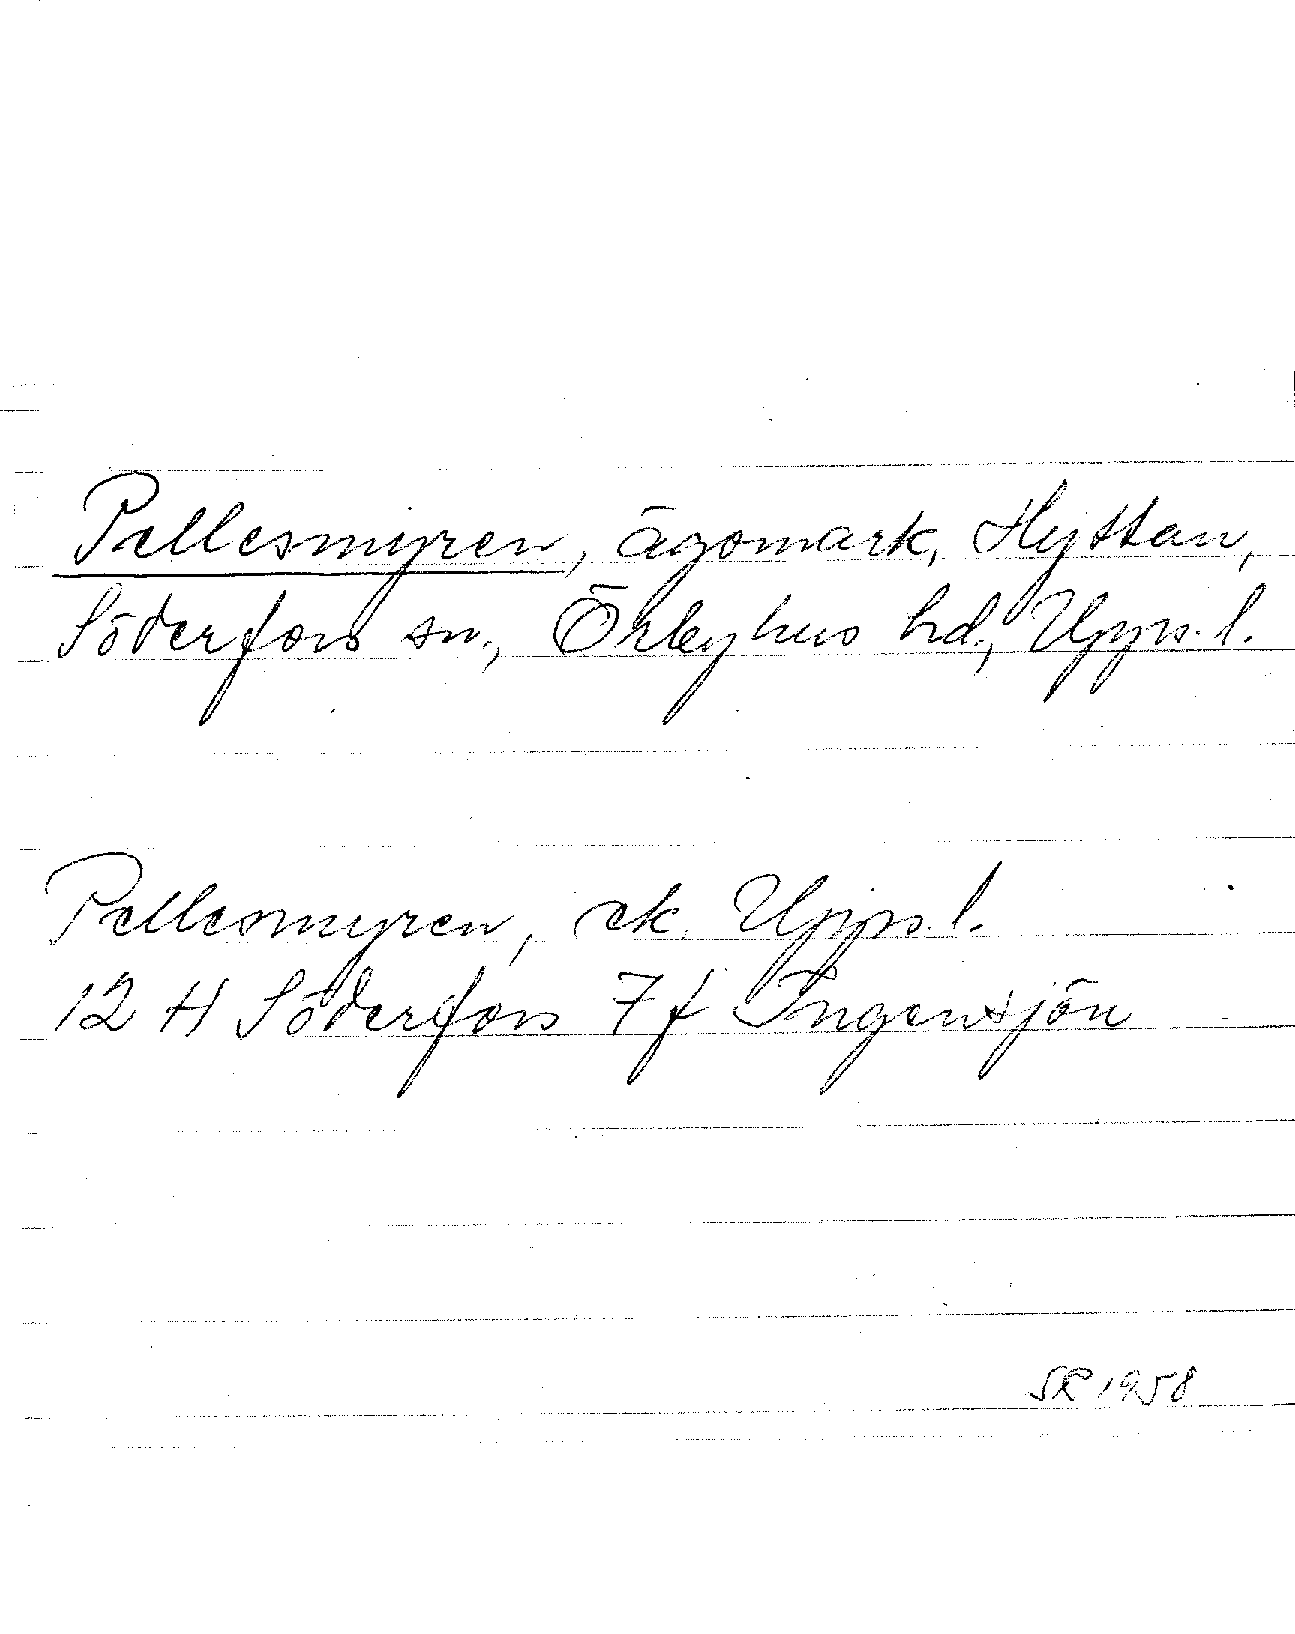 Pellesmyren, ägomark, Hyttan,
Söderfors sn., Örbyhus hd., Upps. l.
Pellesmyren, ek. Upps. l.
12 H Söderfors 7 f Ingensjön
SR 1958